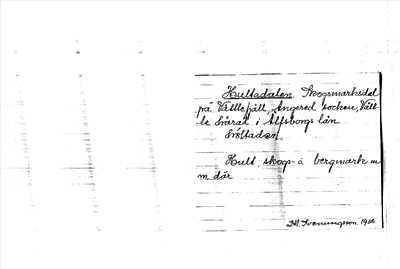 Hultadalen. Skogsmarksdal
på Vättlefjäll, Angered socken, Vätt-
le härad i Älfsborgs län
Hult, skog- å bergmark m
m där
Hj. Svenungsson. 1922